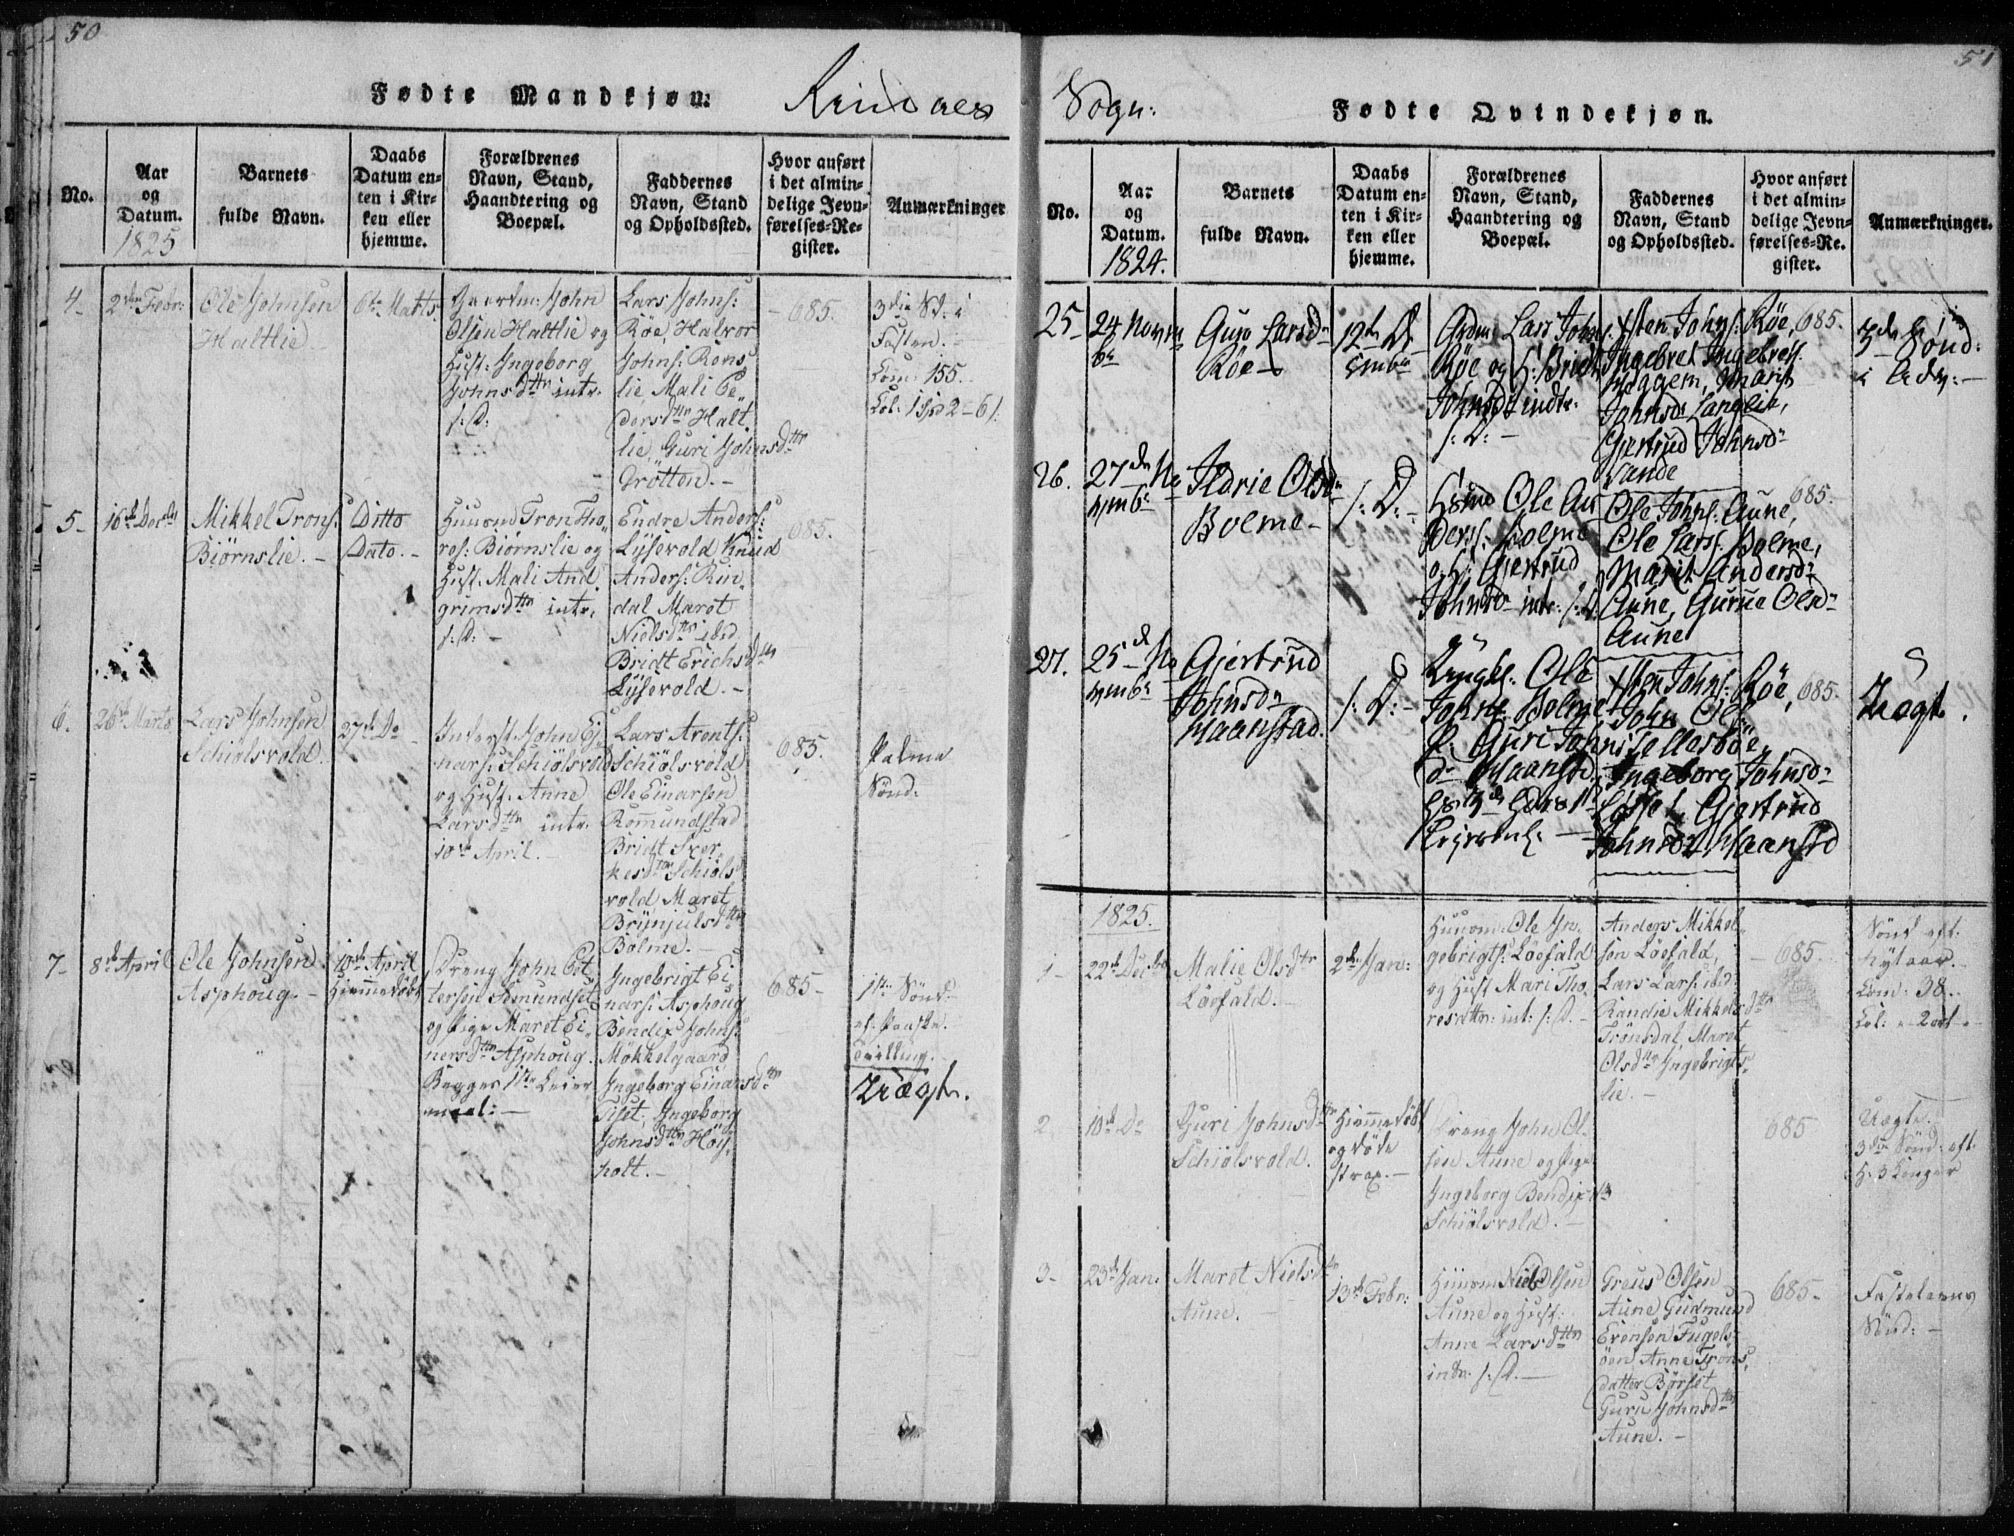 50
Fødte Mandkjøn:
Rindaes
No.
Aar
og
Datum.
1825
Barnets
fulde Navn.
Daabs
Datum en-
ten i Kir-
ken eller
hjemme.
Forældrenes
Navn, Stand,
Haandtering og
Boepæl.
Faddernes
Navn, Stand
og Opholdssted.
Hvor anført
i det almin-
delige Jevn-
førelses-Re-
gister.
Anmærkninger
4-
2den Febr:
Ole Johnsen
Halttie
6te Marts.
Gaardm: John
Olsen Halttie og
Hust: Ingeborg
Johnsdttr intr.
s: D:
Lars Johns:
Röe, Halvor
Johns: Röns
lie Mali Pe-
dersdttr Halt
lie, Guri Johnsdttr
Trötten. -
685.
3die Sd: i
Fasten. -
Com: 155.
5-
16de Decbr
Mikkel Trons:
Biörnslie. -
Ditto
Dato. -
Huusmd Tron Tho-
res: Biörnslie og
Hust: Mali And
grimsdttr intr.
s: D: -
Endre Anders:
Lÿsevold Knud
Anders: Rin
dal Marot
Nielsdttr ibid
Bridt Erichsdttr
Lÿsevold. -
685.
6.
26de Marts
Lars Johnsen
Schiölsvold.
27de Do
Inderst John Ej-
nars: Schiölsvold
og Hust: Anne
Larsdttr intr.
10de April. -
Lars Arents:
Schiölsvold
Ole Einarsen
Romundstad
Bridt Sver
kesdttr Schiöls
vold Maret
Brÿnjulsdttr
Bolme. -
685.
Palme
Sönd:
7-
8de April
Ole Johnsen
Asphoug. -
10de April
Hiemmedöbt
Dreng John Pet
tersen Romundset
og Pige Maret Ei-
nersdttr Asphoug.
Begges 1ste Leier
maal: -
Ingebrigt Ei
nars: Asphoug
Bendix Johns:
Mökkelgaard
Ingeborg Einarsdttr
Tiset, Ingeborg
Johnsdttr Höÿ
holt. -
685-
1ste Sönd-
ef: Paaske.
Tvilling.
Uægte.
51
Sogn:
Fødte Qvindekjøn.
No.
Aar
og
Datum.
1824.
Barnets
fulde Navn.
Daabs
Datum en-
ten i Kir-
ken eller
hjemme.
Forældrenes
Navn, Stand,
Haandtering og
Boepæl.
Faddernes
Navn, Stand
og Opholdssted.
Hvor anført
i det almin-
delige Jevn-
førelses-Re.
gister.
Anmærkninger.
25
24 Novem
br
Guro Larsdr
Röe
12te De
cembr
Gdm Lars Johns:
Röe og H: Bridt
Johnsdr indtr.
s: D: -
Sten Johns: Röe,
Ingebret Ingebrets:
Heggem, Marit
Johnsdr Langlie,
Gjertrud Johnsdr
Sande
685.
3de Sönd:
i Adv: -
26.
27de No
vembr
Ildrie Olsdr
Bolme -
s: D: -
Hsmd Ole An
ders: Bolme
og H: Gjertrud
Johnsdr intr: s: D.
Ole Johns: Aune,
Ole Lars: Bolme,
Marit Andersdr
Aune, Gurue Olsdr
Aune
685.
27.
25de No
vembr
Gjertrud
Johnsdr
Maanstad.
s: D: -
Ungk: Ole
Johns: Bolme
P: Guri Johns
dr Maanstd
Sten Johns: Röe,
John Ols:
Tellesböe,
Ingeborg Johnsdr
Gjertrud
Johnsdr Maanstd
685.
Uægte.
1825.
1-
22de Decbr
Malie Olsdtr
Löefald. -
2den Jan:
Huusm: Ole In-
gebrigts: Löefald
og Hust Mari Tho-
resdttr: int: s: D. -
Anders Mikkel-
sen Löefald,
Lars Lars: ibid:
Randie Mikkelsdttr
Trönsdal, Maret
Olsdttr Ingebrigts
lie. -
685.
Sönd eft.
Nytaar. -
Com: 38.-
2
10de Do
Guri Johnsdttr
Schiölsvold.
Hiemmedöbt
og döde
strax. -
Dreng John Ol-
sen Aune og Pige
Ingeborg Bendixdtr
Schiölsvold. -
685
Uægte.
3die Sönd: eft
H: 3 Konger
3-
23de Jan:
Maret Nielsdtr
Aune. -
13de Febr:
Huusm Niels Olsen
Aune og Hust:
Anne Larsdttr
indtr. s: D. -
Greus Olsen
Aune Gudmund
Evensen Fugels-
öen Anne Trons
datter Börset
Guru Johnsdttr
Aune. -
685-
Fastelavns
Sönd: -